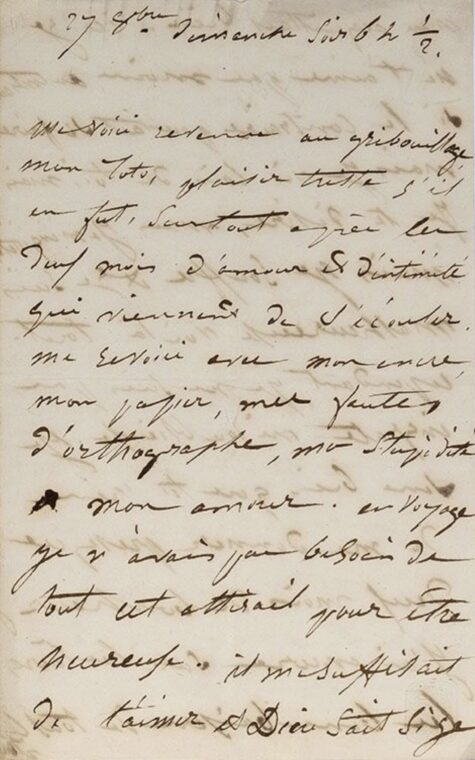 27 8bre Dimanche Soir 6 h ½.
Me voici revenue au gribouillage,
mon Toto, plaisir triste s'il
en fut, surtout après les
deux mois d'amour et d'intimité
qui viennent de s'écouler.
me revoici avec mon encre,
mon papier, mes fautes
d'orthographe, ma stupidité
et mon amour. en voyage
je n'avais pas besoin de
tout cet attirail pour être
heureuse. il me suffisait
de t'aimer et Dieu sait si je